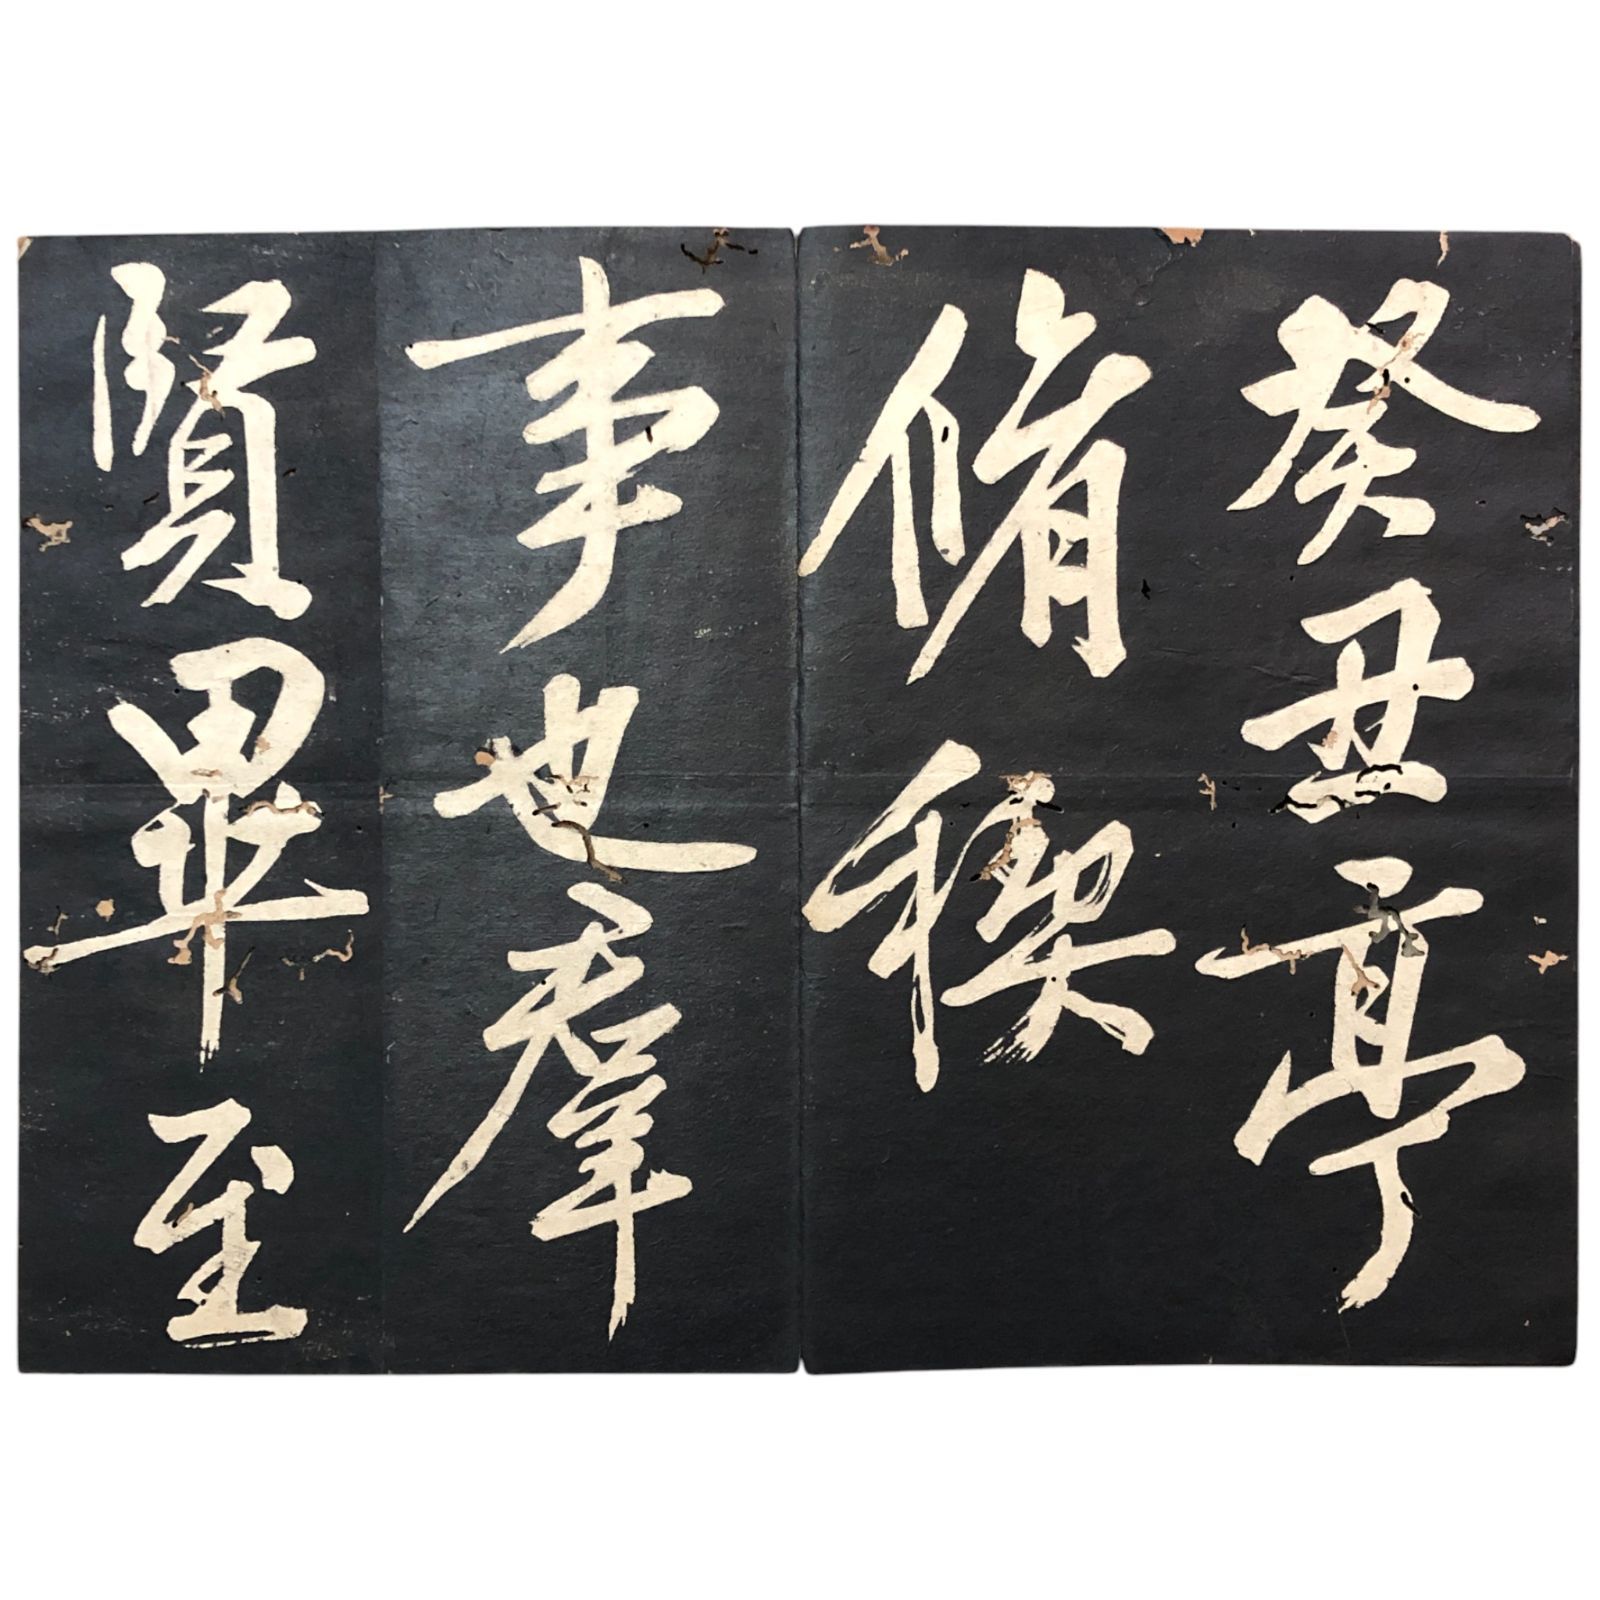 癸丑亭
脩稧
事也羣
賢畢至